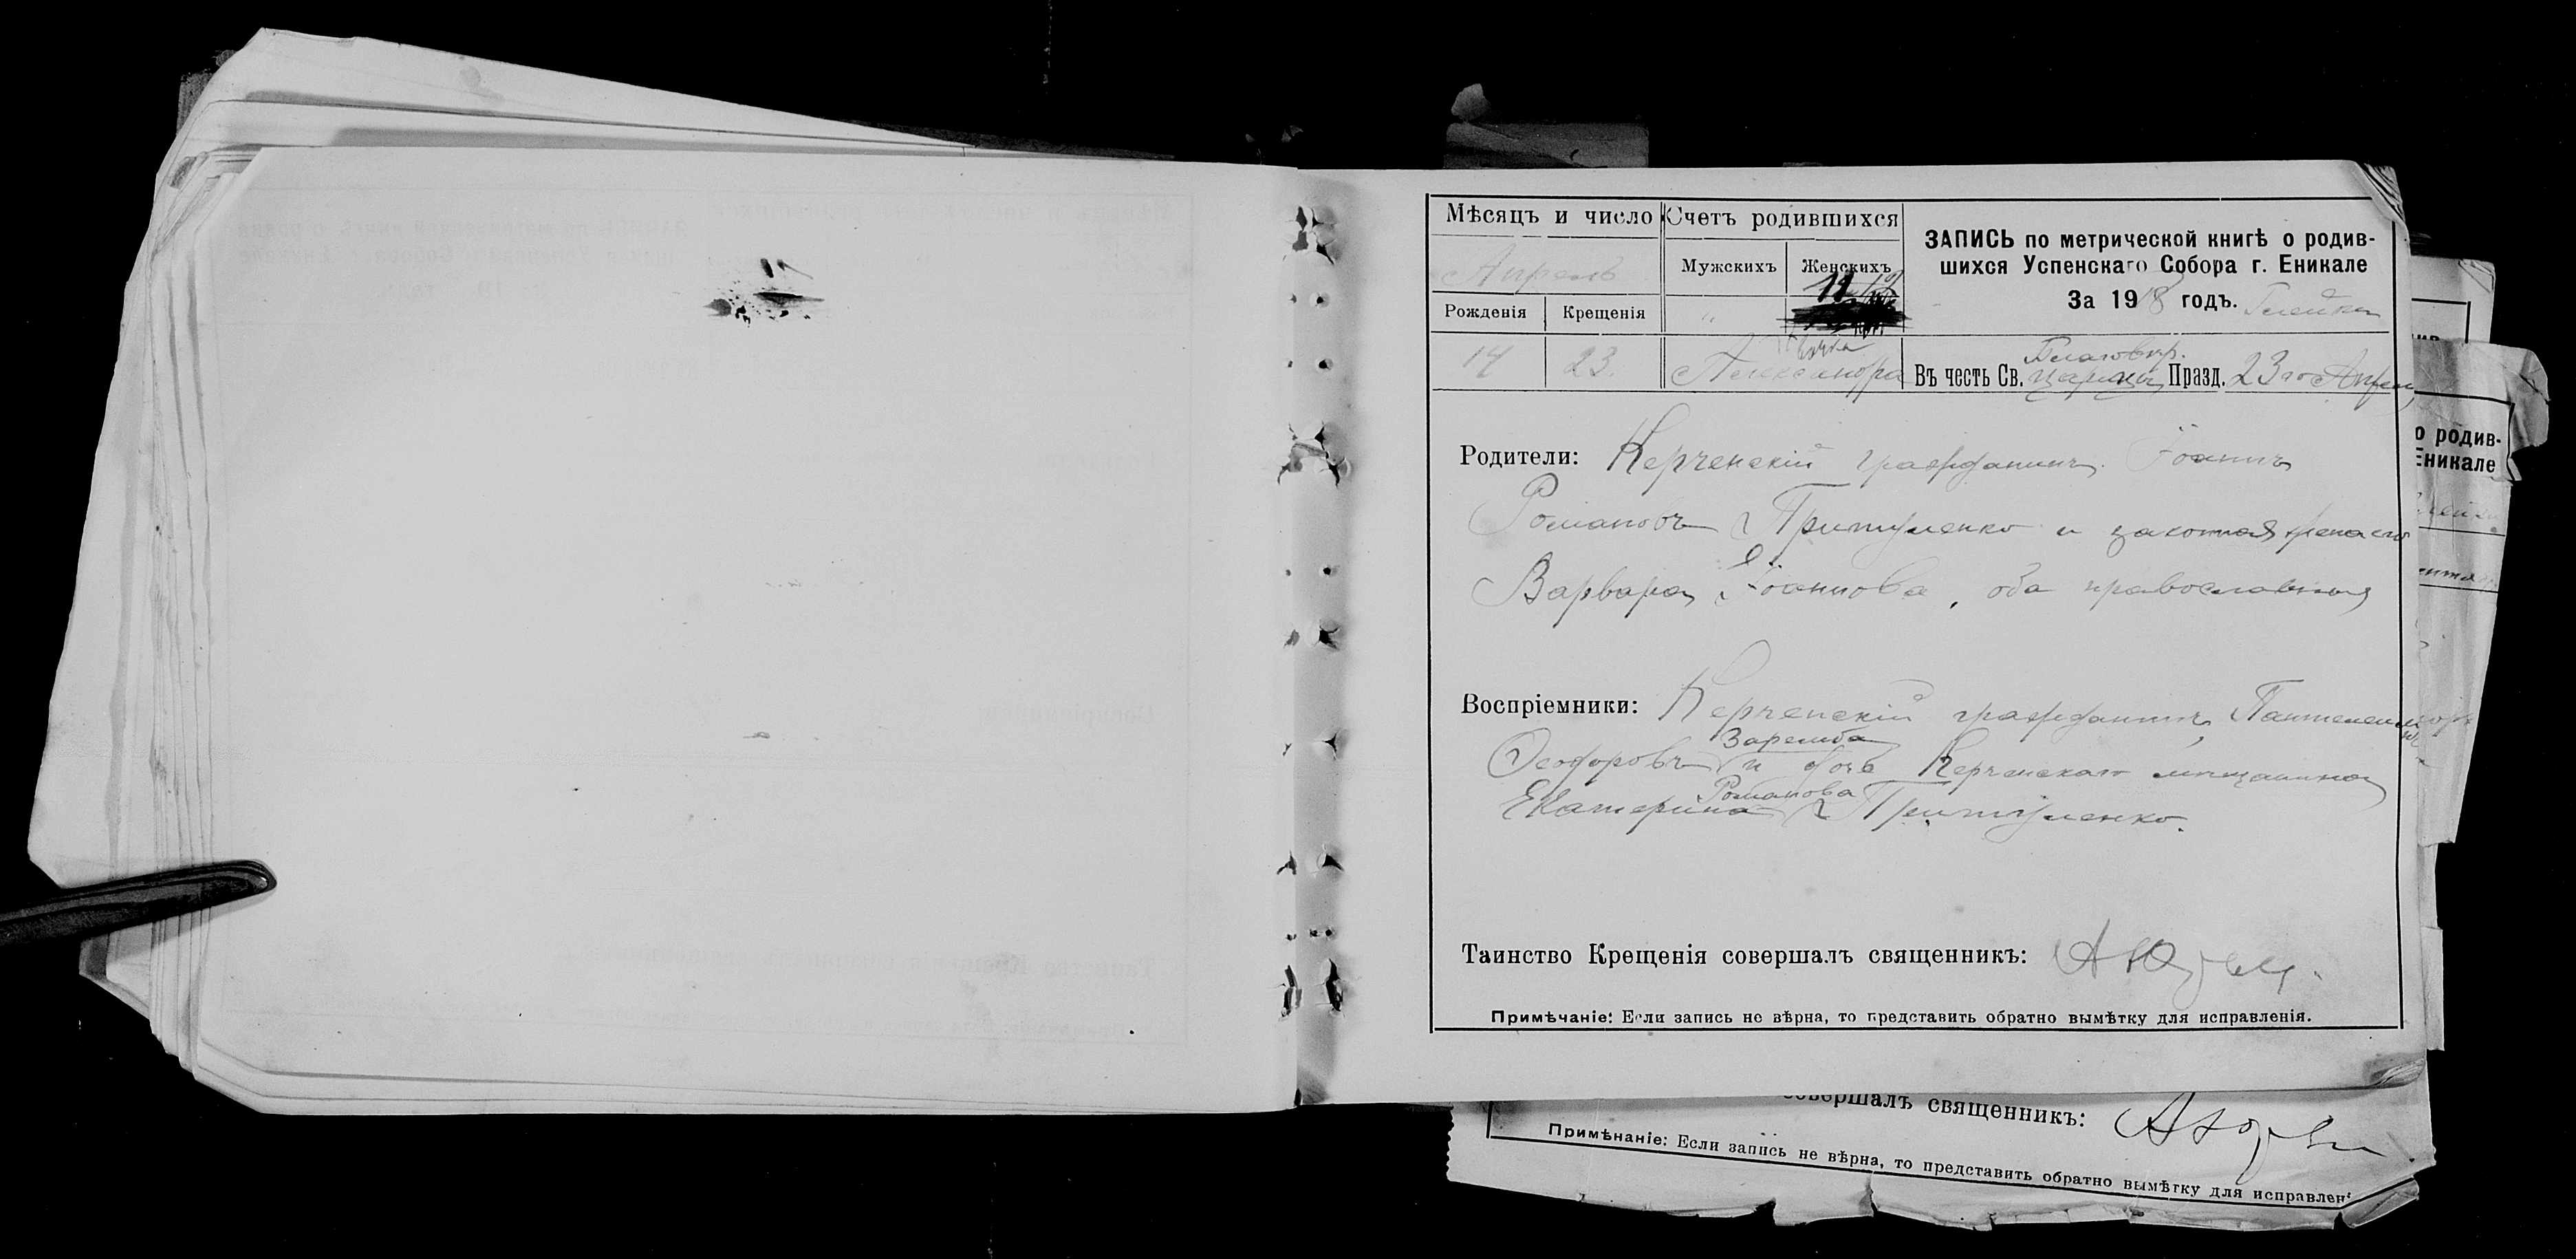 Мѣсяцъ и число
Счетъ родившихся
ЗАПИСЬ по метрической книгѣ о родив-
шихся Успенскаго Собора г. Еникале
За 1918 годъ.
Апрель
Мужскихъ
Женскихъ
11
Рожденія
Крещенія
"
14
23.
Александра
Въ честь Св. Благовѣр. царицы Празд. 23го Апрѣля
Родители: Керченскій гражданинъ Іоаннъ
Романовъ Притуленко и законная жена его
Варвара Іоаннова, оба православныя
Воспріемники: Керченскій гражданинъ Пантелеимонъ
Ѳеодоровъ Заремба и дочь Керченскаго мѣщанина
Екатерина Романова Притуленко.
Таинство Крещенія совершалъ священникъ:
Примѣчаніе: Если запись не вѣрна, то представить обратно вымѣтку для исправленія.
о родив-
Еникале
совершалъ священникъ:
Примѣчаніе: Если запись не вѣрна, то представить обратно вымѣтку для исправлен